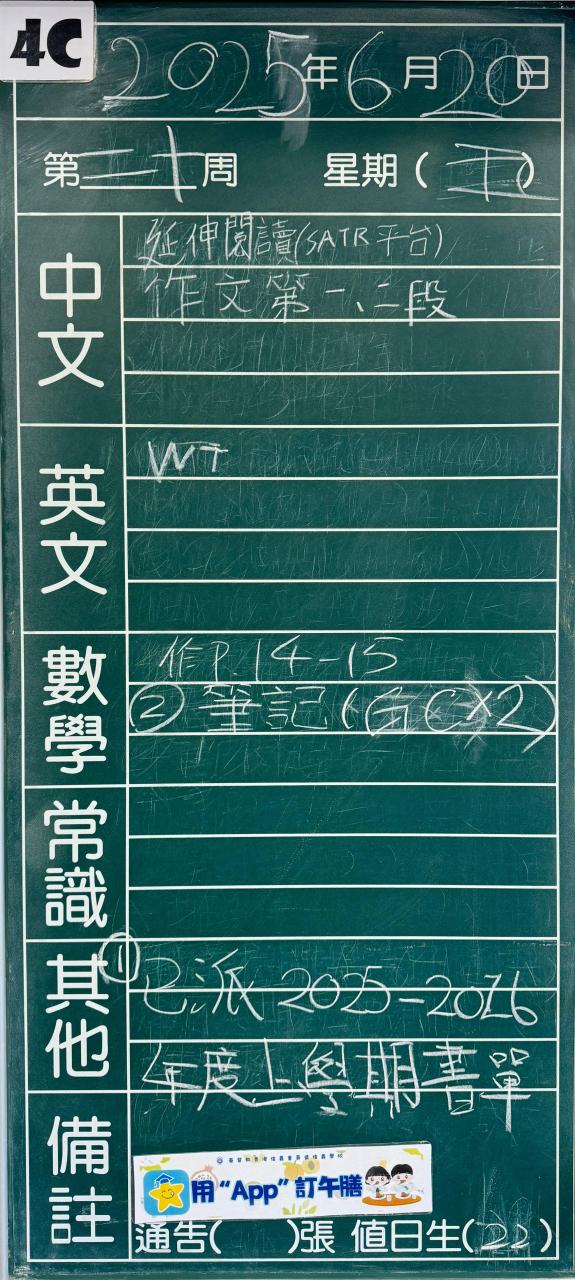 4C
2025年6月20日
第二十周 星期(五)
中文
延伸閱讀(SATR平台)
作文第一、二段
英文
WT
數學
作P.14-15
② 筆記(函C×2)
常識
其他
① 已派 2025-2026
年度上學期書單
備註
用“App”訂午膳
通告( )張 值日生(22)